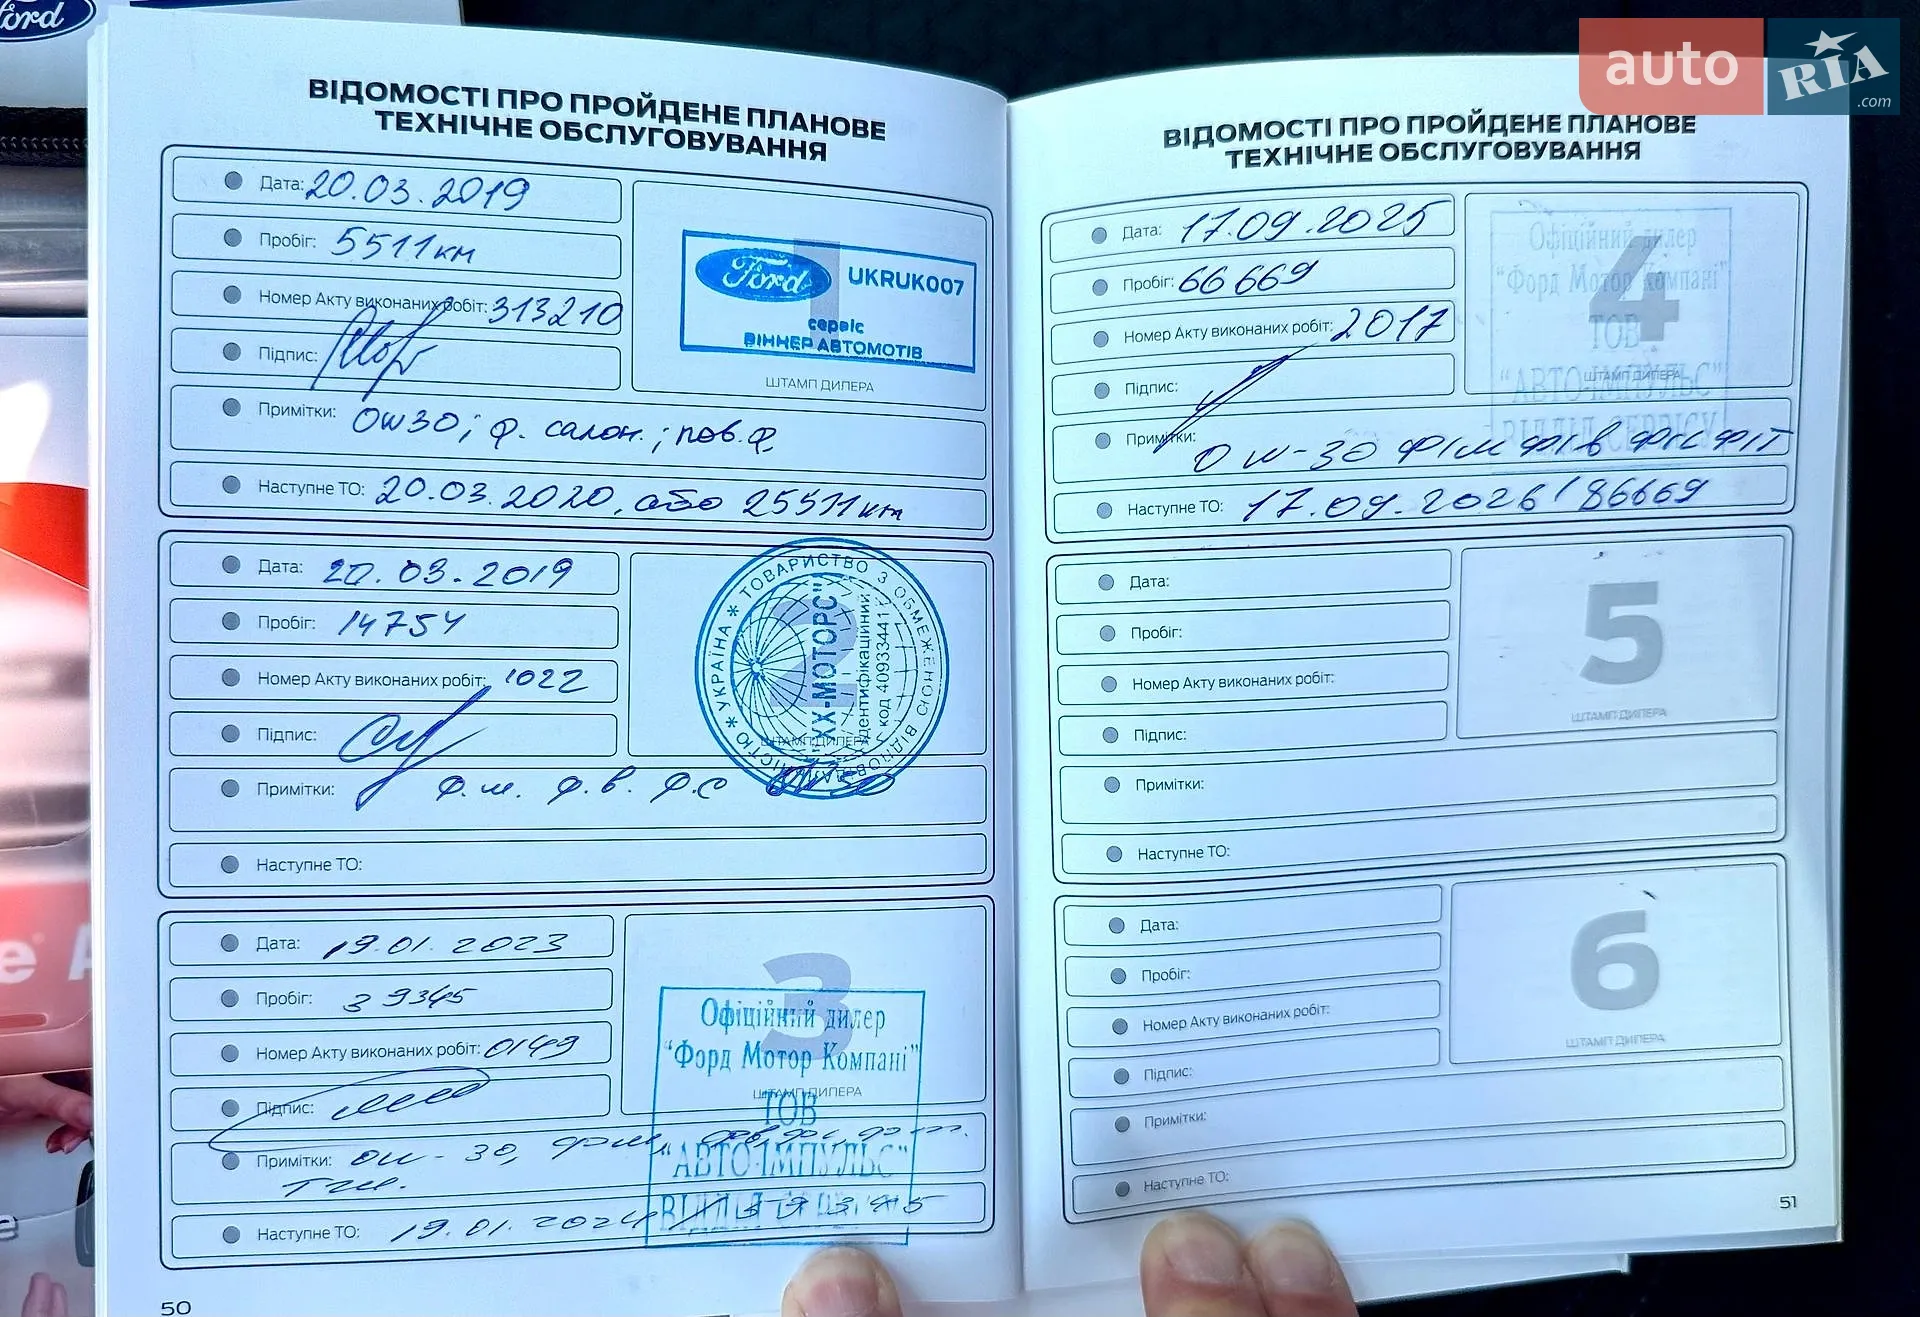 Ford
auto
RIA
.com
ВІДОМОСТІ ПРО ПРОЙДЕНЕ ПЛАНОВЕ
ТЕХНІЧНЕ ОБСЛУГОВУВАННЯ
Дата: 20.03.2019
Пробіг: 5511км
Номер Акту виконаних робіт: 313210
Підпис:
1
Ford UKRUK007
сервіс
ВІННЕР АВТОМОТІВ
ШТАМП ДИЛЕРА
Примітки: 0w30; ф. салон.; пов.ф.
Наступне ТО: 20.03.2020, або 25511км
Дата: 20.03.2019
Пробіг: 14754
Номер Акту виконаних робіт: 1022
Підпис:
2
УКРАЇНА * ТОВАРИСТВО З ОБМЕЖЕНОЮ ВІДПОВІДАЛЬНІСТЮ *
"ХХ-МОТОРС"
Ідентифікаційний
код 40933441
ШТАМП ДИЛЕРА
Примітки: ф.м. ф.в. ф.с
Наступне ТО:
Дата: 19.01.2023
Пробіг: 39345
Номер Акту виконаних робіт: 0149
Підпис:
3
Офіційний дилер
"Форд Мотор Компані"
ШТАМП ДИЛЕРА
ТОВ
"АВТО-ІМПУЛЬС"
ВІДДІЛ СЕРВІСУ
Примітки: 0w-30,
Наступне ТО: 19.01.2024
50
ВІДОМОСТІ ПРО ПРОЙДЕНЕ ПЛАНОВЕ
ТЕХНІЧНЕ ОБСЛУГОВУВАННЯ
Дата: 17.09.2025
Пробіг: 66669
Номер Акту виконаних робіт: 2017
Підпис:
4
Офіційний дилер
"Форд Мотор Компані"
ТОВ
ШТАМП ДИЛЕРА
"АВТО-ІМПУЛЬС"
ВІДДІЛ СЕРВІСУ
Примітки: 0w-30 фім фів фіс фіт
Наступне ТО: 17.09.2026/86669
Дата:
Пробіг:
Номер Акту виконаних робіт:
Підпис:
5
ШТАМП ДИЛЕРА
Примітки:
Наступне ТО:
Дата:
Пробіг:
Номер Акту виконаних робіт:
Підпис:
6
ШТАМП ДИЛЕРА
Примітки:
Наступне ТО:
51